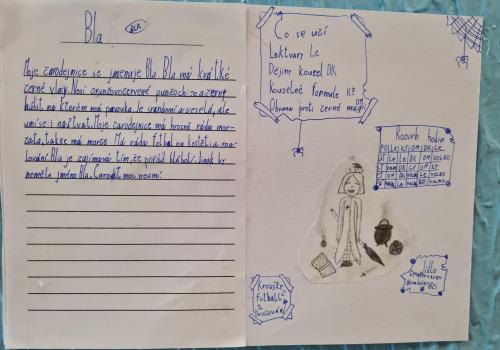 Bla
BLA
Moje čarodejnice se jmenuje Bla. Bla má krátké
černé vlasy. Nosí oranžovočervené punčochy a černý
na kterém má pavouka. Je srandovní a veselá, ale
umí se i naštvat. Moje čarodejnice má hrozně ráda mor-
čata, takže má morče. Má ráda fotbal na koštěti a ma-
lování. Bla je zajímavá tím, že pořád blábolí. Jinak by
neměla jméno Bla. Čarovat moc neumí.
Co se učí
Lektvary Le
Dějiny kouzel DK
Kouzelné formule KF
Obranu proti černé magii
OM
Rozvrh hodin
PO LE KF OM DK LE
ÚT LE LE DK OM VOLNO
Jídlo
Kroužky
Fotbal
Doučování